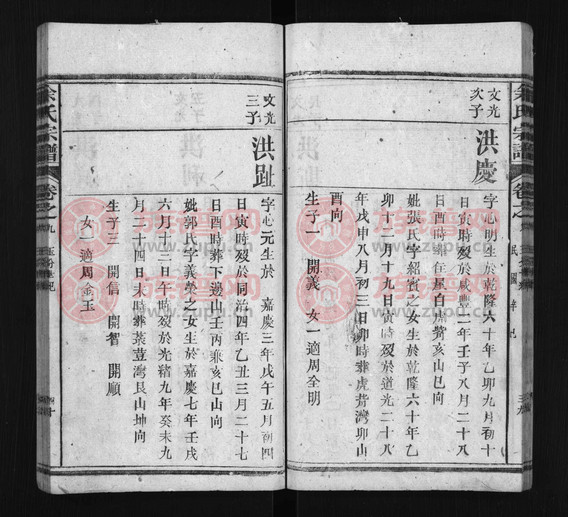 文光
次子
洪慶
字心明生於乾隆六十年乙卯九月初十
日寅時歿於咸豐二年壬子八月二十二
日酉時葬在屋白虎嘴亥山巳向
妣張氏字紹賓之女生於乾隆六十年乙
卯十二月十九日寅時歿於道光二十八
年戊申八月初三日卯時葬虎背灣卯山
酉向
生子一 開義 女一適周全明
余氏宗譜
卷之九
民國辛巳
三九
文光
三子
洪趾
字心元生於 嘉慶三年戊午五月初四
日寅時歿於同治四年乙丑三月二十七
日酉時葬下邊山壬丙兼亥巳山向
妣郭氏字義榮之女生於嘉慶七年壬戌
六月十三日午時歿於光緒九年癸未九
月二十四日未時葬菜荳灣艮山坤向
生子三 開信 開智 開順
女一適周金玉
余氏宗譜
卷之九
四十
族譜网
www.zupu.cn